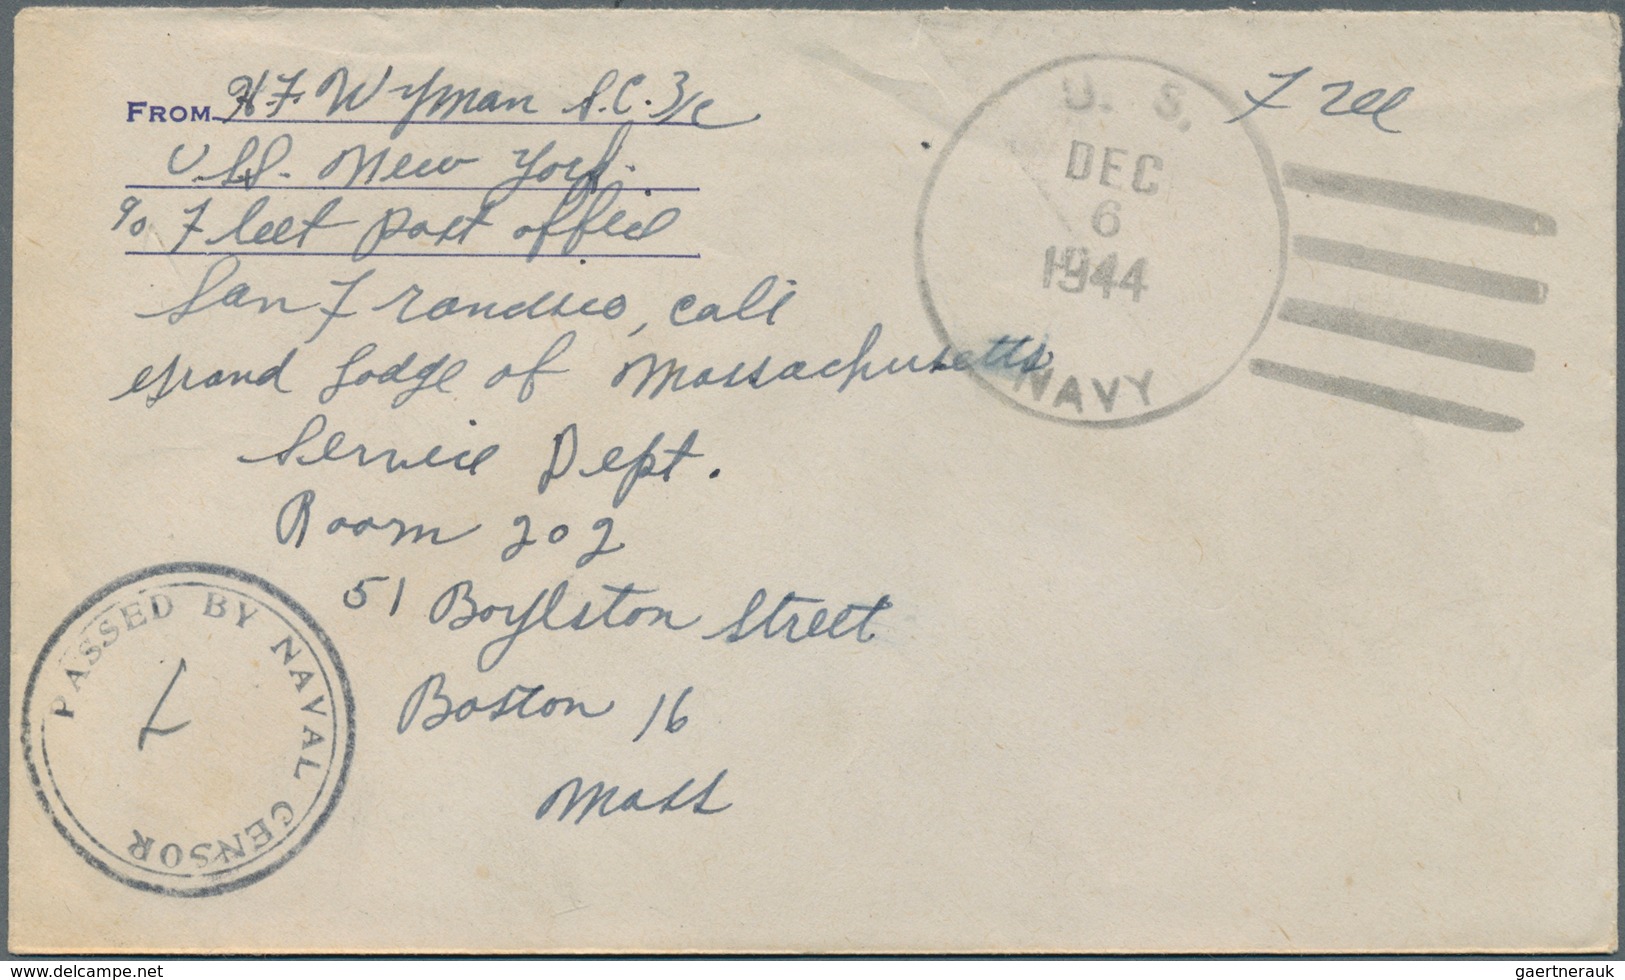 FROM H.F. Wyman S.C. 3/c
U.S.S. New York.
c/o Fleet post office
San Francisco, cali
Grand Lodge of Massachusetts
Service Dept.
Room 202
51 Boylston Street
Boston 16
Mass
Free
U. S.
DEC
6
1944
NAVY
PASSED BY NAVAL CENSOR
www.delcampe.net
gaertnerauk